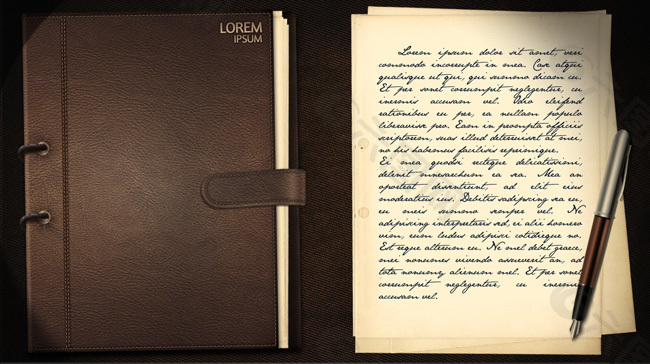 LOREM
IPSUM
Lorem ipsum dolor sit amet, veri
commodo incorrupte in mea. Case atqui
qualisque ut qui, qui summo dicam eu.
Et per sonet corrumpit neglegentur, cu
inermis accusam vel. Odio eleifend
rationibus eu per, ea nullam populo
liberavisse pro. Eam in prompta officiis
scriptorem, suas illud deterruisset at mei,
no his habemus facilisis reprimique.
Ei mea quodsi recteque delicatissimi,
delenit mnesarchum ea sea. Mea an
oporteat dissentiunt, ad elit eius
moderatius ius. Debitis sadipscing sea eu,
eu meis summo semper vel. Ne
adipiscing interpretaris sed, ei alii homero
vim, eum ludus adipisci cotidieque no.
Est reque alterum eu. Ne mel debet graece,
mei nonumes vivendo assueverit an, ad
tota nonumy alienum mel. Et per sonet
corrumpit neglegentur, cu inermis
accusam vel.